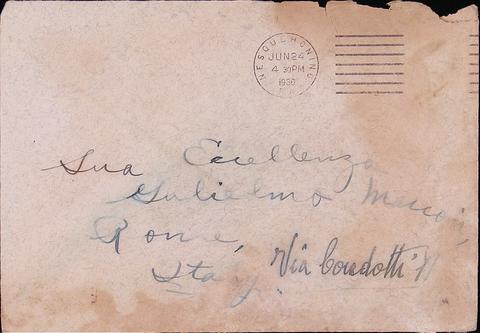 NESQUEHONING
JUN 24
4 30 PM
1930
PA.
Sua Eccellenza
Gulielmo
Rome, Via Condotti
Italy.